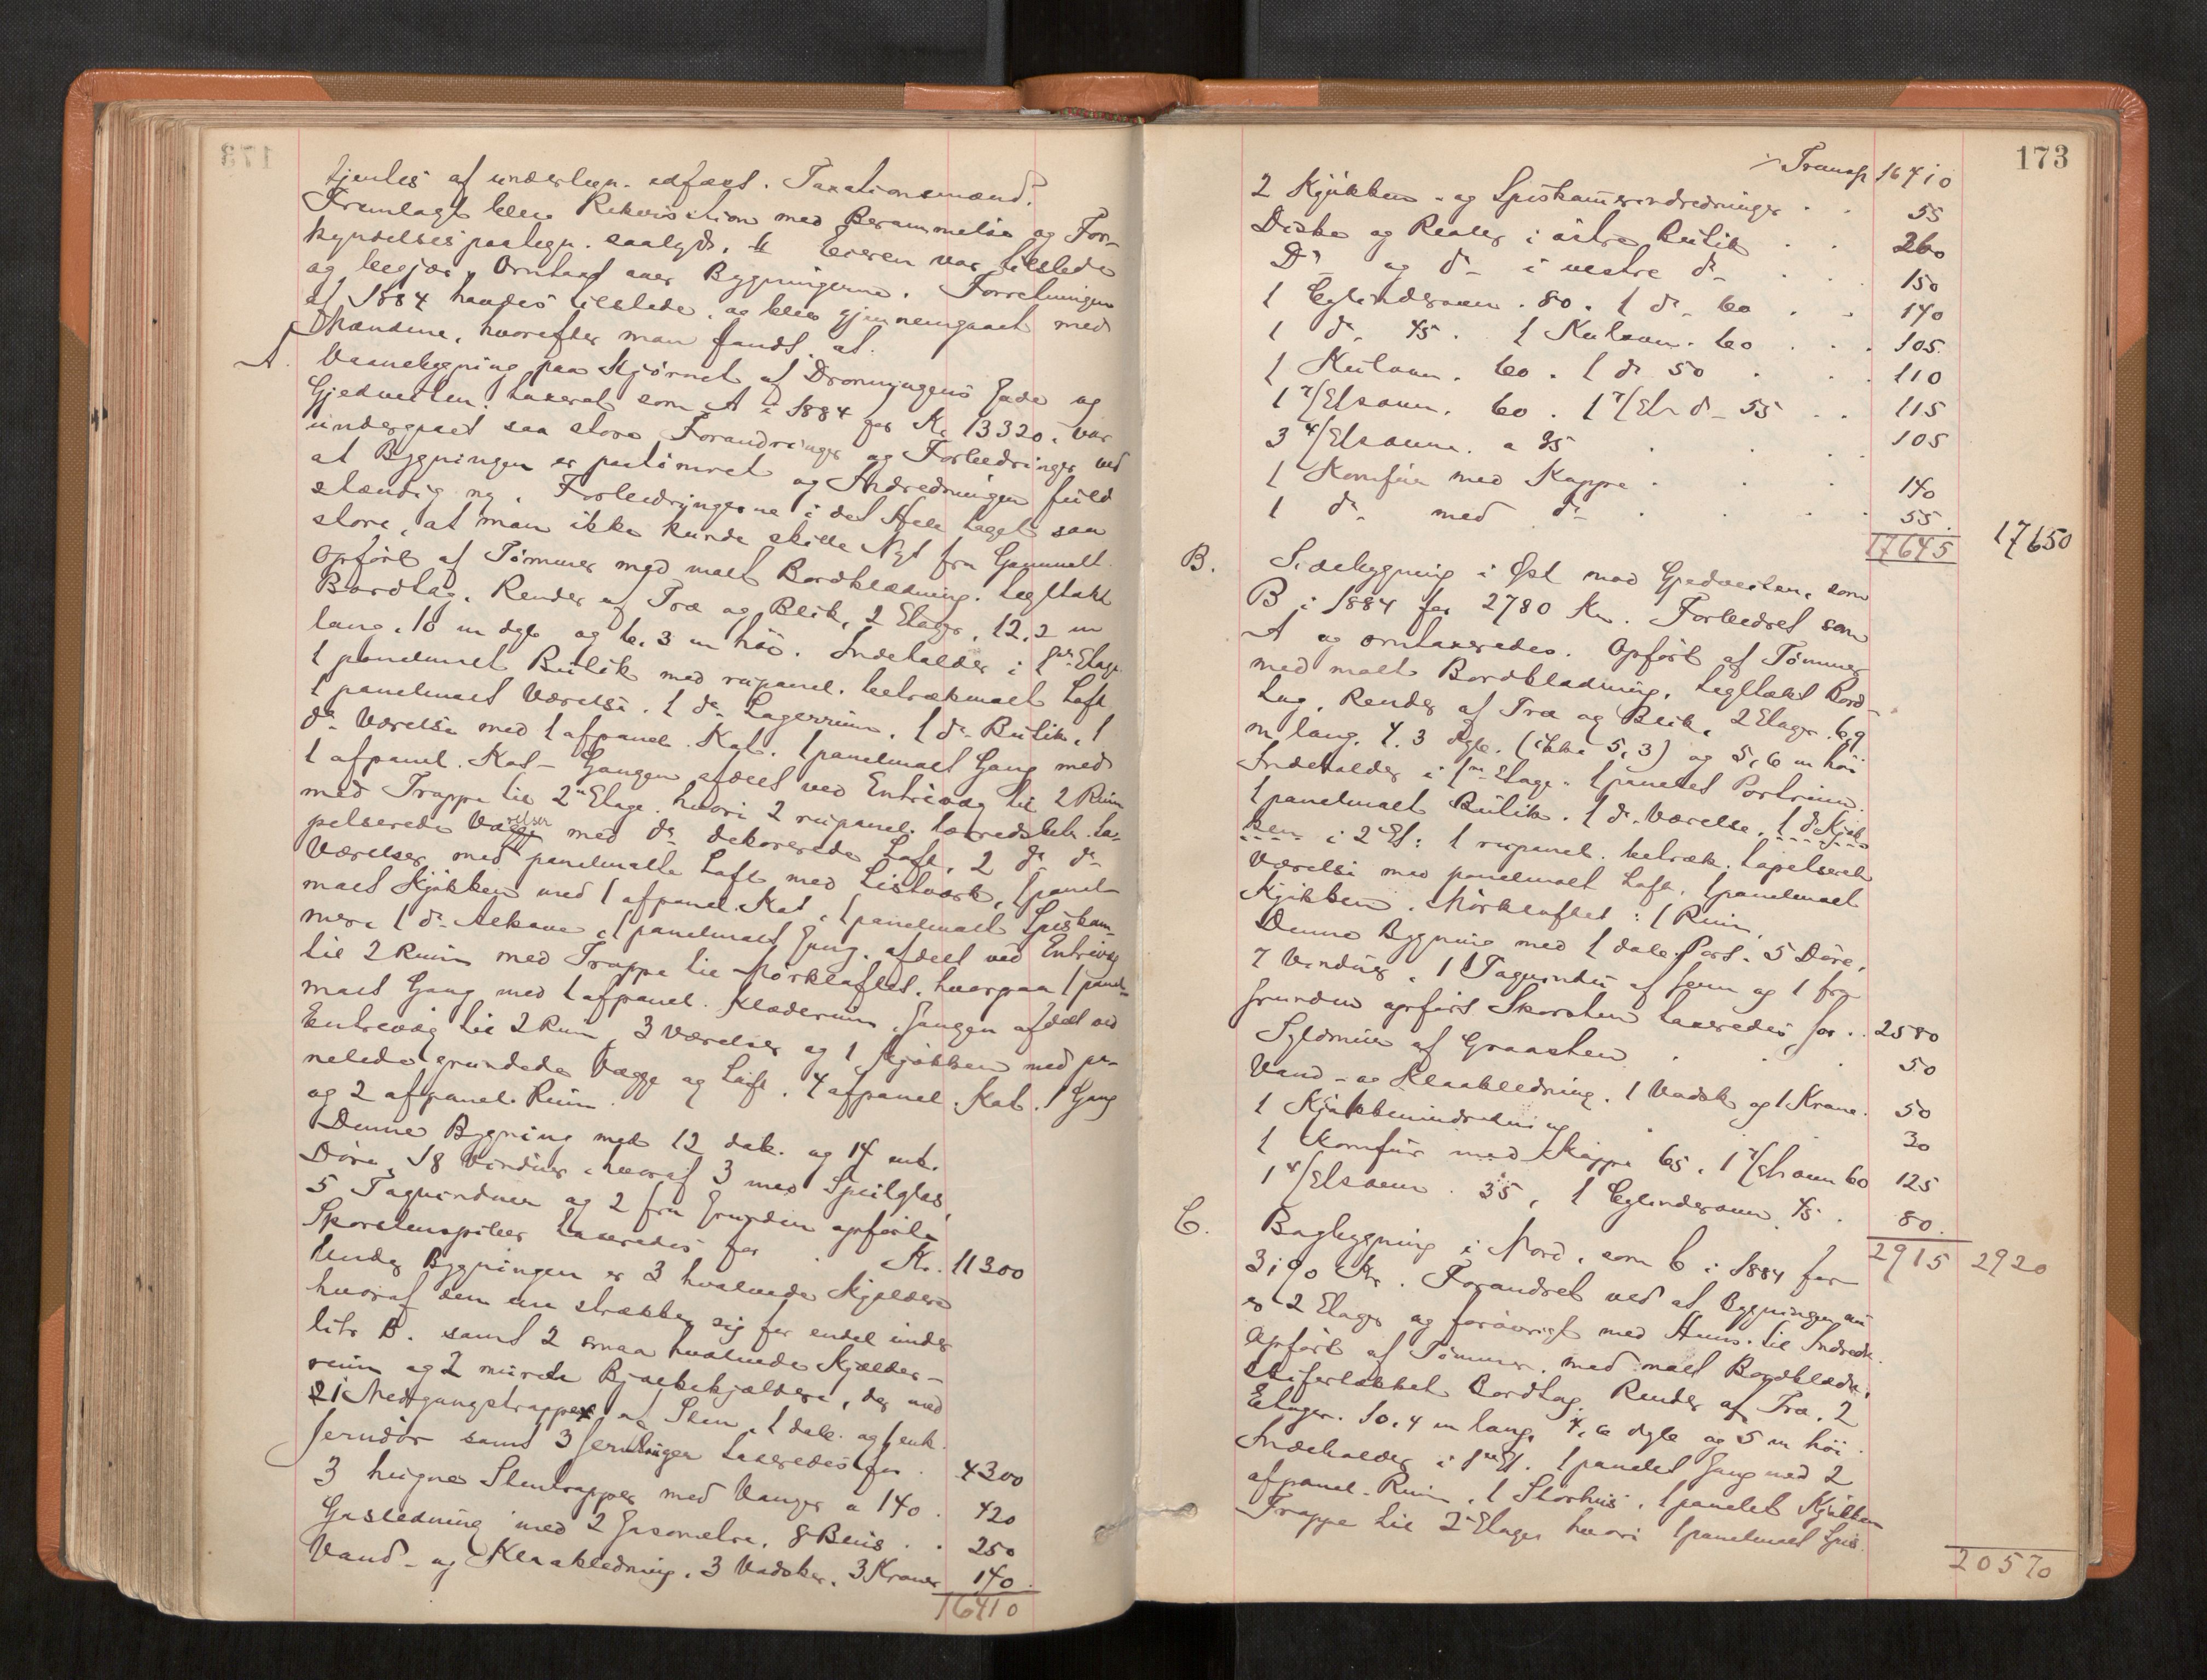 tjentes af underlegn. edfæst. Taxationsmænd.
Fremlagt blev Rekvisition med Berammelse og For-
kyndelsespaategn. saalyd. Eieren var tilstede
og begjær. Omtaxt over Bygningerne. Forretningen
af 1884 havdes tilstede, og blev gjennemgaaet med
Mændene, hvorefter man fandt at:
A. Vaanebygning paa Hjørnet af Dronningens Gade og
Gjedveiten. taxeret som A i 1884 for Kr. 13320, var
undergaaet saa store Forandringer og Forbedringer ved
at Bygningen er paatimret og Indredningen fuld-
stændig ny. Forbedringerne i det Hele taget saa
store, at man ikke kunde skille Nyt fra Gammelt.
Opført af Tømmer med malt Bordklædning. tegltakt
Bordtag. Render af Træ og Blik, 2 Etager, 12,2 m
lang. 10 m dyb og 6,3 m høi. Indeholder i 1ste Etage
1 panelmalt Butik med rupanel. betrækmalt Loft
1 panelmalt Værelse. 1 do Lagerrum, 1 do Butik, 1
do Værelse med 1 afpanel. Kot. 1 panelmalt Gang med
1 afpanel. Kot - Gangen afdelt ved Entrivæg til 2 Rum
med Trappe til 2den Etage. hvori 2 rupanel. lærredsbetr. ta-
petserede Værelser med do dekorerede Loft, 2 do do
Værelser med panelmalte Loft med Listværk, 1 panel-
malt Kjøkken med 1 afpanel. Kot, 1 panelmalt Spiskam-
mer. 1 do Alkove, 1 panelmalt Gang. afdelt ved Entrivæg
til 2 Rum med Trappe til Mørkloftet. hvorpaa 1 panel-
malt Gang med 1 afpanel. Klæderum, Gangen afdelt ved
Entrevæg til 2 Rum, 3 Værelser og 1 Kjøkken med pa-
nelede grundede Vægge og Loft. 4 afpanel. Kot. 1 Gang
og 2 afpanel. Rum.
Denne Bygning med 12 dob. og 14 enk.
Døre, 18 Vinduer, hvoraf 3 med Speilglas,
5 Tagvinduer og 2 fra Grunden opførte
Skorstenspiber taxeredes for Kr. 11300
Under Bygningen er 3 hvælvede Kjældere
hvoraf den ene strækker sig for endel under
litr. B. samt 2 smaa hvælvede Kjælder-
rum og 2 murede Bjælkekjældere, der med
21 Nedgangstrapper af Sten, 1 dob. og 1 enk.
Jerndør samt 3 Jernluger taxeredes for . 4300
3 hugne Stentrapper med Vanger a 140 . 420
Gasledning med 2 Gasometre, 8 Blus . . 250
Vand- og Kloakledning. 3 Vadsker. 3 Kraner 140.
16410
173
Transp 16410
2 Kjøkken- og Spiskamerindredninger . . 55
Diske og Reoler i østre Butik . . 260
Do og do i vestre do . . 150
1 Cylinderovn. 80. 1 do 60 . . 140
1 do 45. 1 Kulovn. 60 . . . 105.
1 Kulovn. 60. 1 do 50 . . . 110
1 7/Elsovn. 60. 1 7/Els do 55 . . 115
3 4/Elsovne a 35 . . . 105
1 Komfur med Kappe . . . 140
1 do med do . . . . 55.
17645 17650
B. Sidebygning i Øst mod Gjedveiten, som
B i 1884 for 2780 Kr. Forbedret som
A og omtaxeredes. Opført af Tømmer
med malt Bordklædning, tegltækt Bord-
tag. Render af Træ og Blik, 2 Etager. 6,9
m lang. 4.3 dyb. (ikke 5,3) og 5,6 m høi
Indeholder i 1ste Etage. 1 panelet Portrum.
1 panelmalt Butik. 1 do Værelse. 1 do Kjøk-
ken i 2 Et: 1 rupanel. betræk. tapetseret
Værelse med panelmalt Loft. 1 panelmalt
Kjøkken. Mørkloftet: 1 Rum.
Denne Bygning med 1 dob. Port. 5 Døre.
7 Vinduer, 1 Tagvindu af Jern og 1 fra
Grunden opført Skorsten taxeredes for . . 2580
Syldmur af Graasten . . . 50
Vand- og Kloakledning. 1 Vadsk og 1 Krane . 50
1 Kjøkkenindredning . . . 30
1 Komfur med Kappe 65. 1 7/Elsovn 60 125
1 4/Elsovn . 35, 1 Cylinderovn. 45 . 80.
2915 2920
C. Bagbygning i Nord, som C i 1884 for
3190 Kr. Forandret ved at Bygningen nu
er 2 Etager og forøvrigt med Hens. til Indredn.
Opført af Tømmer, med malt Bordklædn.
skifertækket Bordtag. Render af Træ. 2
Etager. 10,4 m lang, 4,6 dyb og 5 m høi.
Indeholder i 1ste Et. 1 panelet Gang med 2
afpanel. Rum. 1 Storhus. 1 panelet Kjøkken
Trappe til 2 Etage hvori 1 panelmalt Spis.
20570